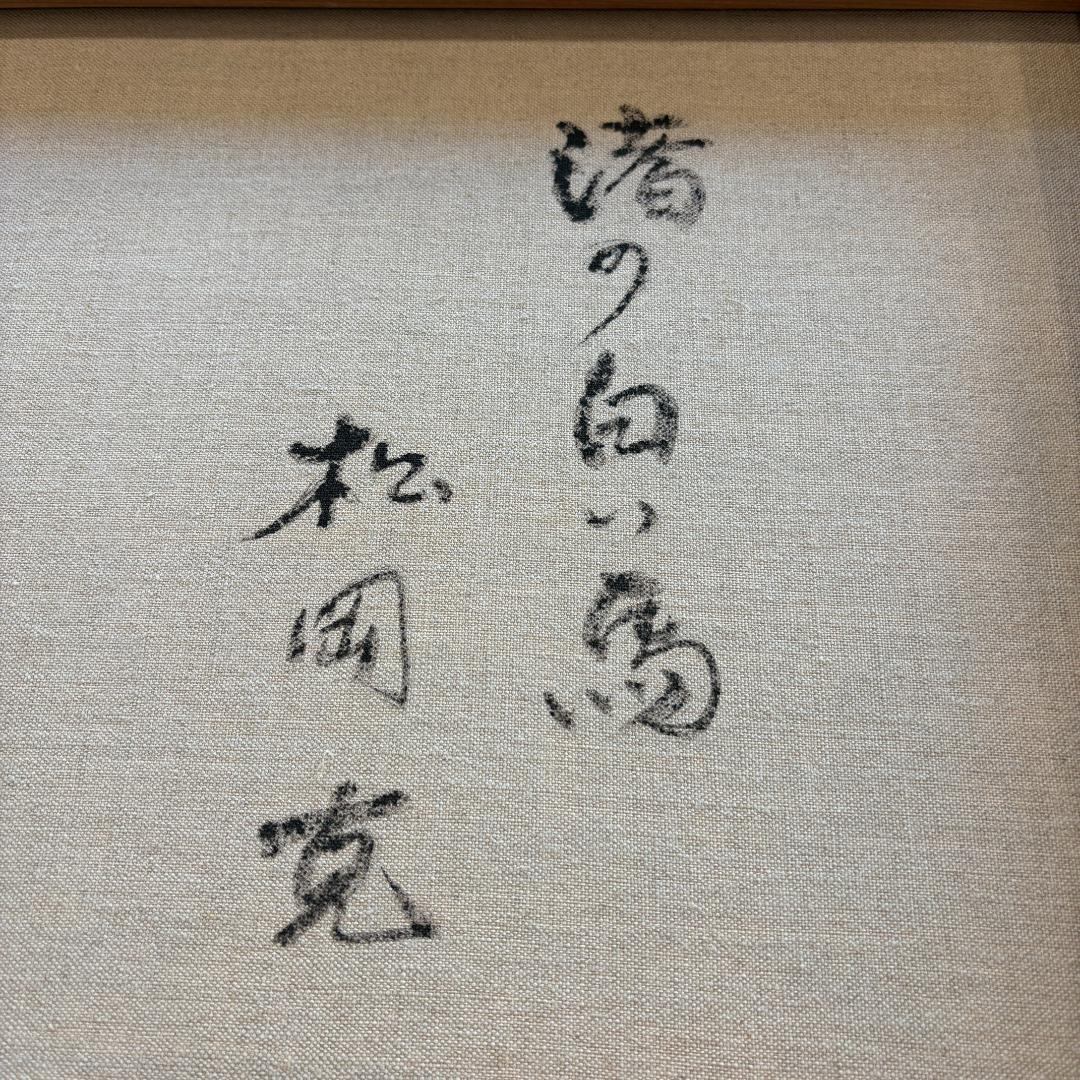 渚の白い馬
松岡寛